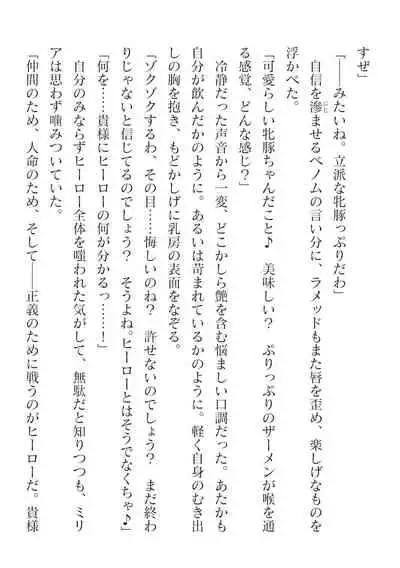 すぜ」
「――みたいね。立派な牝豚っぷりだわ」
　自信を滲ませるベノムの言い分に、ラメッドもまた唇を歪め、楽しげなものを
浮かべた。
「可愛らしい牝豚ちゃんだこと♪　美味しい？　ぷりっぷりのザーメンが喉を通
る感覚、どんな感じ？」
　冷静だった声音から一変、どこかしら艶を含む悩ましい口調だった。あたかも
自分が飲んだかのように。あるいは苛まれているかのように。軽く自身のむき出
しの胸を抱き、もどかしげに乳房の表面をなぞる。
「ゾクゾクするわ、その目……悔しいのね？　許せないのでしょう？　まだ終わ
りじゃないと信じてるのでしょう？　そうよね。ヒーローとはそうでなくちゃ♪」
「何を……貴様にヒーローの何が分かるっ……！」
　自分のみならずヒーロー全体を嗤われた気がして、無駄だと知りつつも、ミリ
アは思わず噛みついていた。
「仲間のため、人命のため、そして――正義のために戦うのがヒーローだ。貴様